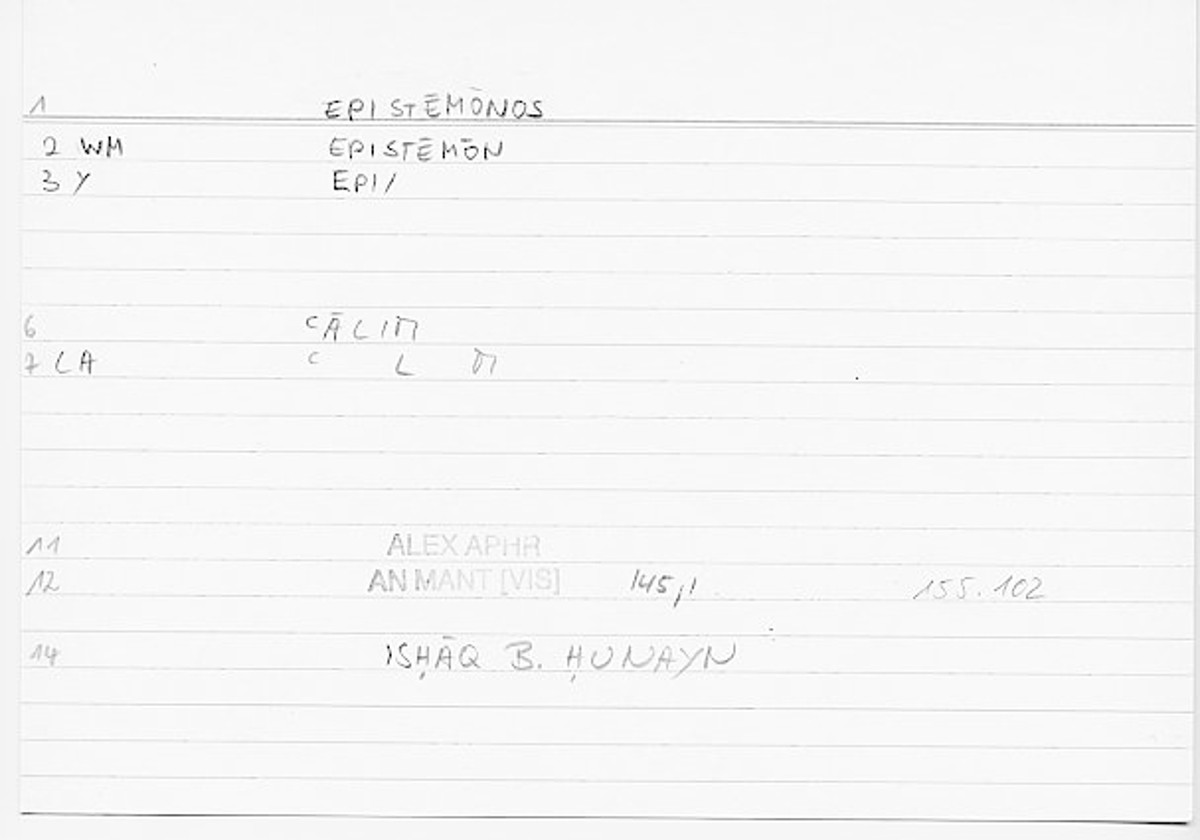 1 EPISTĒMŌNOS
2 WM EPISTĒMŌN
3 Y EPI/
6 ᶜĀLIM
7 LA ᶜ L M
11 ALEX APHR
12 AN MANT [VIS] 145,1 155.102
14 ISḤĀQ B. ḤUNAYN